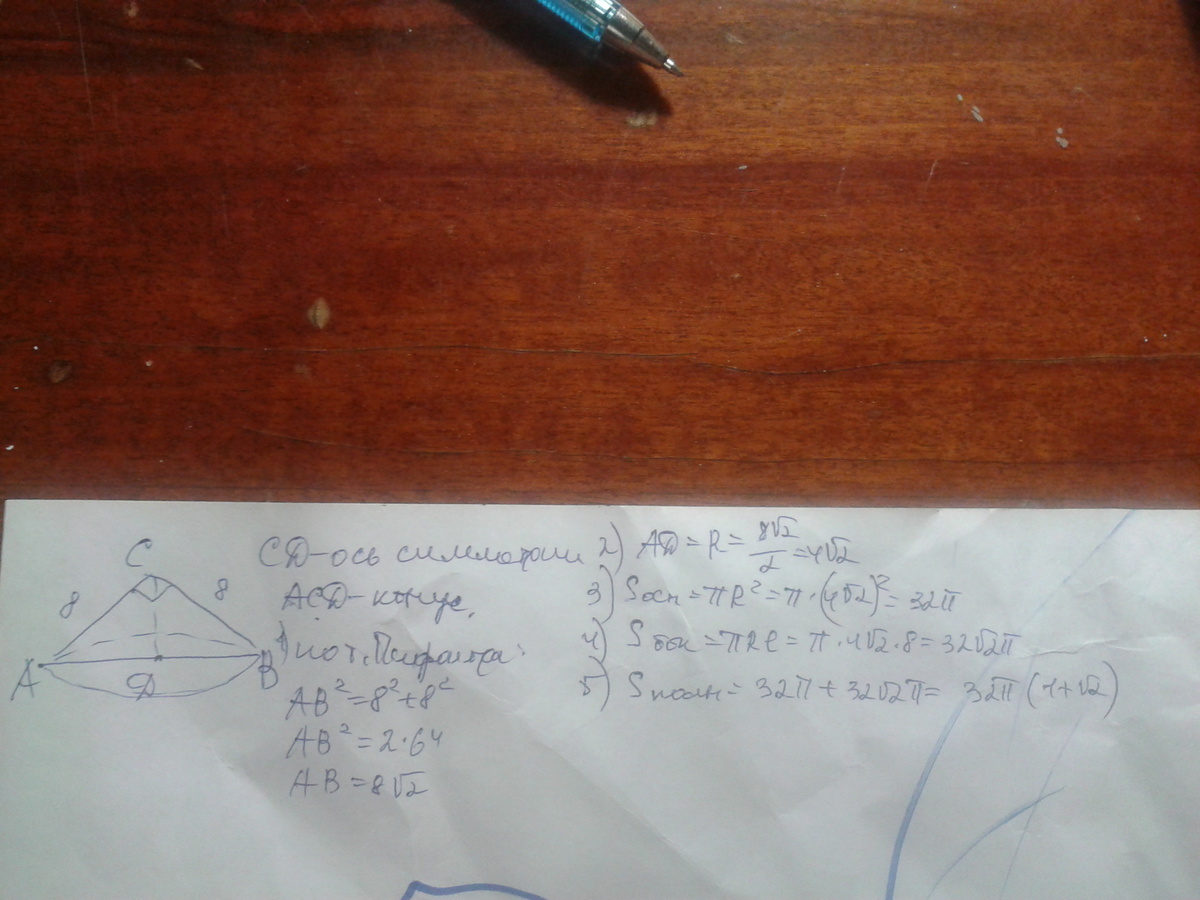 C
8
8
A
D
B
CD-ось симметрии
ACD-конус,
1) по т. Пифагора:
AB² = 8² + 8²
AB² = 2·64
AB = 8√2
2) AD = R = 8√2/2 = 4√2
3) Sосн = πR² = π·(4√2)² = 32π
4) Sбок = πRl = π·4√2·8 = 32√2π
5) Sполн = 32π + 32√2π = 32π(1+√2)